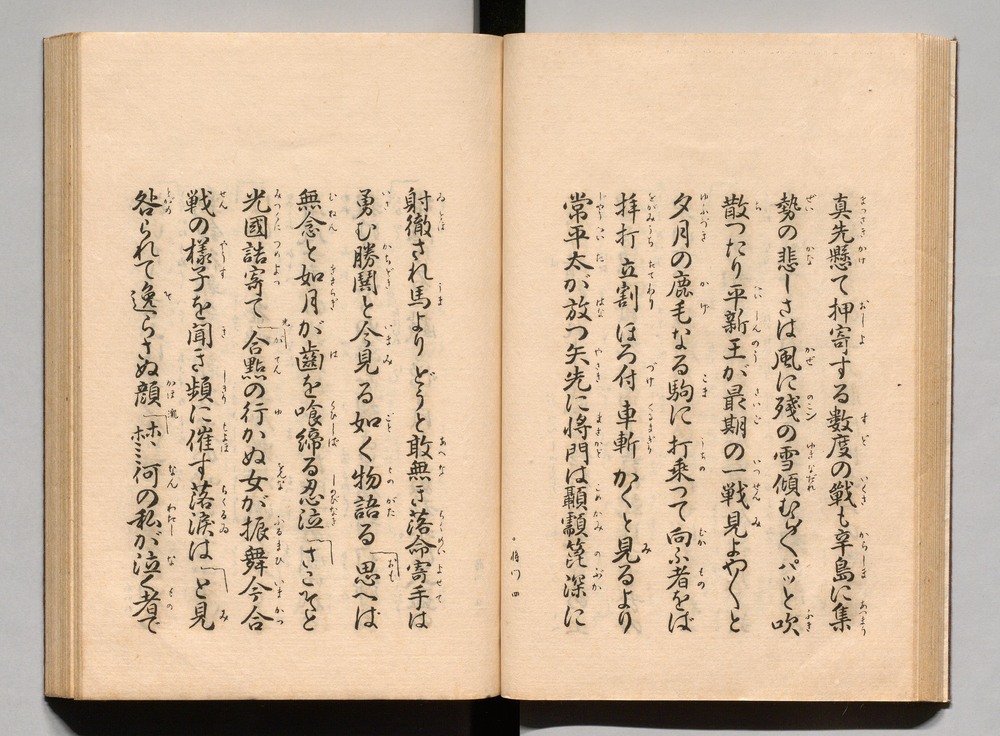 真先懸て押寄する数度の戰も辛島に集
勢の悲しさは風に殘の雪傾むらくパッと吹
散つたり平新王が最期の一戦見よや〱と
夕月の鹿毛なる駒に打乗つて向ふ者をば
拝打立割ほろ付車斬かくと見るより
常平太が放つ矢先に将門は顳顬箆深に
将門 四
射徹され馬よりどうと敢無き落命寄手は
勇む勝鬨と今見る如く物語る「思へば
無念と如月が齒を喰締る忍泣「さこそと
光國詰寄て「合點の行かぬ女が振舞今合
戦の様子を聞き頻に催す落涙は「と見
咎られて逸らさぬ顔「ホヽヽ何の私が泣く者で